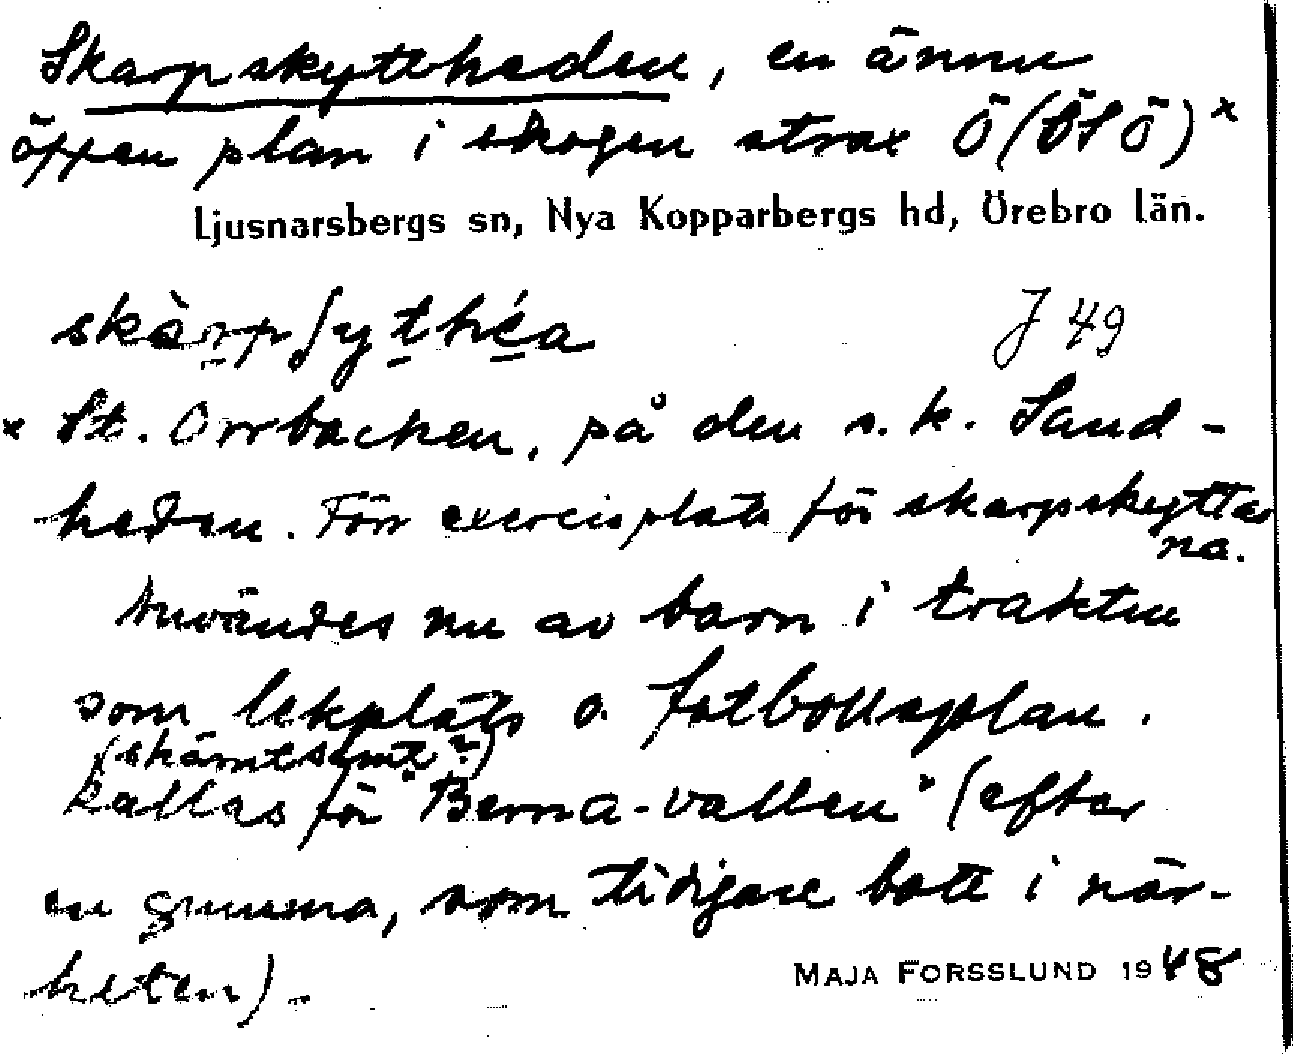 Skarpskytteheden, en ännu
öppen plan i skogen strax Ö (ÖSÖ)ˣ
Ljusnarsbergs sn, Nya Kopparbergs hd, Örebro län.
skàrpʃythéa J 49
x St. Orrbacken, på den s.k. Sand-
heden. Förr exercisplats för skarpskyttar
na.
Användes nu av barn i trakten
som lekplats o. fotbollsplan.
(skämtsamt?)
kallas för "Berna-vallen" (efter
en gumma, som tidigare bott i när-
heten).
MAJA FORSSLUND 1948